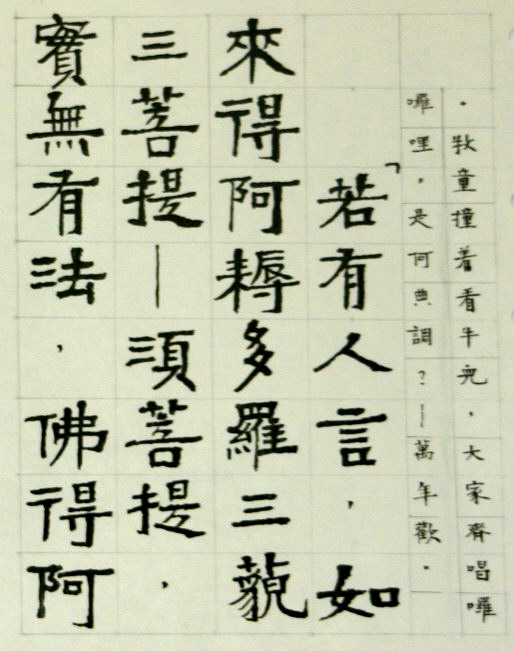 。牧童撞着看牛兒，大家齊唱囉
囉哩。是何典調？—萬年歡。
「若有人言，如
來得阿耨多羅三藐
三菩提—須菩提，
實無有法，佛得阿